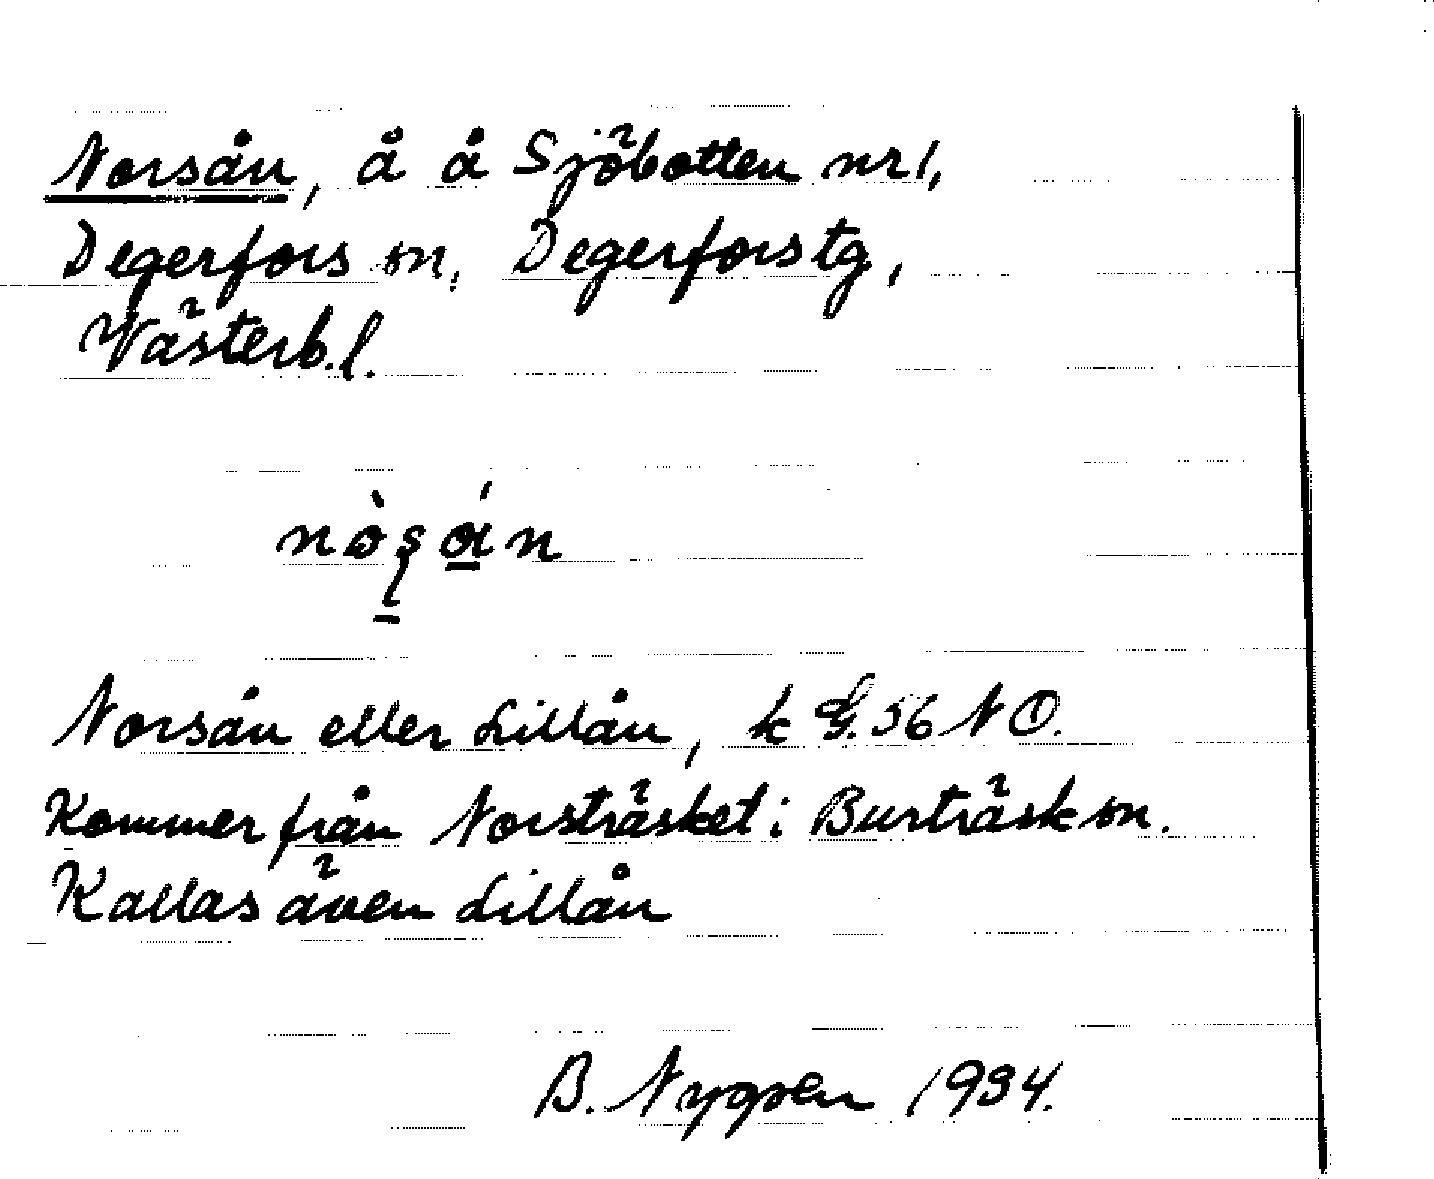 Norsån, å å Sjöbotten nr 1,
Degerfors sn, Degerfors tg,
Västerb.l.
Norsån eller Lillån, k G. 56 NO.
Kommer från Norsträsket i Burträsk sn.
Kallas även Lillån
B. Nygren 1934.